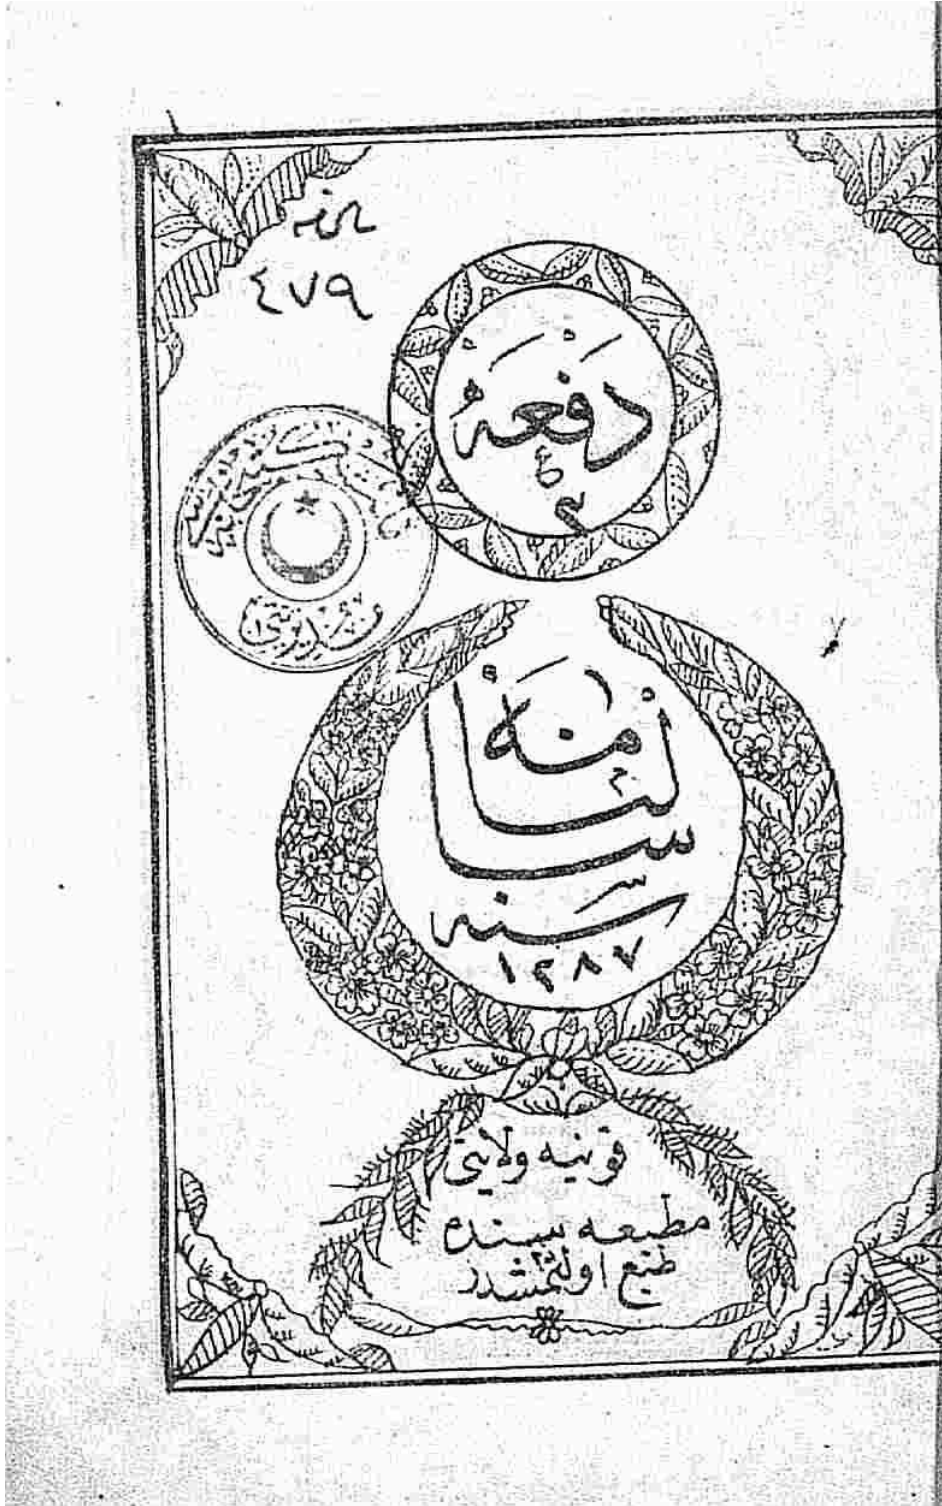 ٤٧٩
دفعهٔ
سالنامهٔ
سنه
١٢٨٧
قونیه ولایتی
مطبعه سنده
طبع اولنمشدر